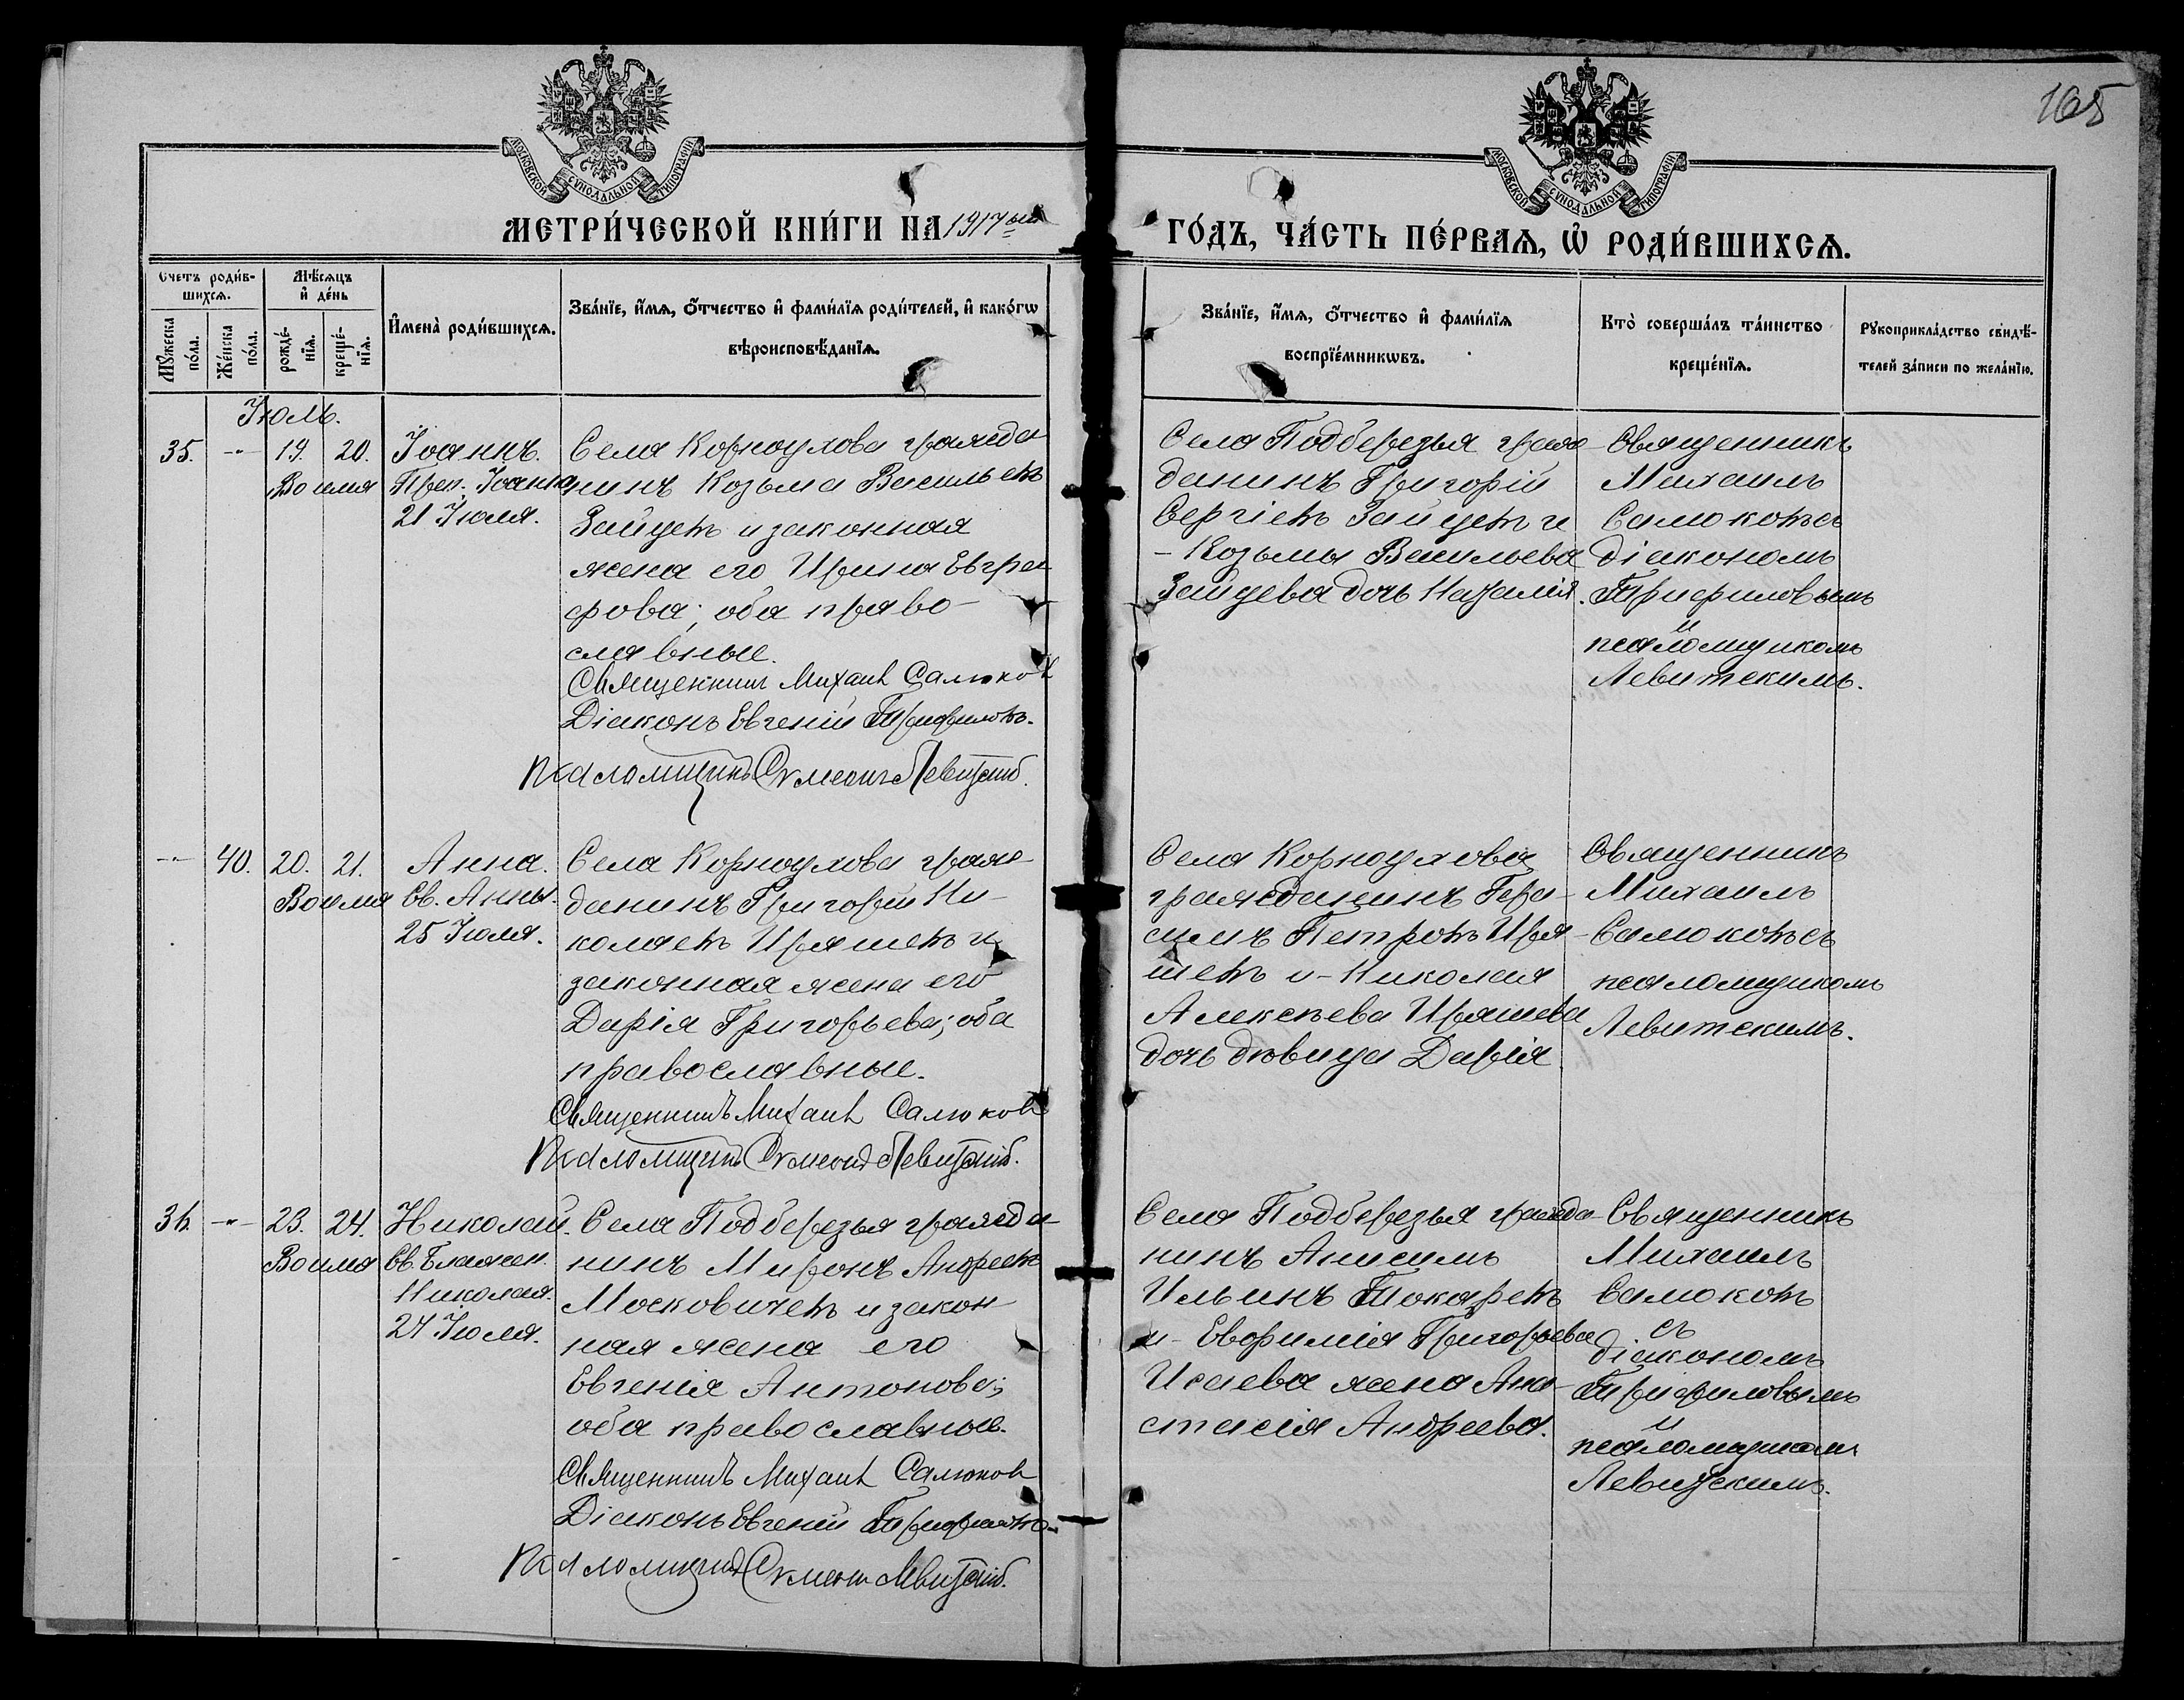 165
МОСКОВСКОЙ СѴНОДАЛЬНОЙ ТИПОГРАФІИ
МОСКОВСКОЙ СѴНОДАЛЬНОЙ ТИПОГРАФІИ
МЕТРИ́ЧЕСКОЙ КНИ́ГИ НА 1917ый
ГО́ДЪ, ЧА́СТЬ ПЕ́РВАѦ, Ѡ҆ РОДИ́ВШИХСѦ.
Счетъ роди́в-
шихсѧ.
Мꙋ́жеска
по́ла.
Же́нска
по́ла.
Мѣ́сѧцъ
и҆ де́нь
рожде́-
нїѧ.
креще́-
нїѧ.
И҆мена̀ роди́вшихсѧ.
Зва́нїе, и҆́мѧ, ѻ҆́тчество и҆ фами́лїѧ роди́телей, и҆ како́гѡ
вѣроисповѣ́данїѧ.
Зва́нїе, и҆́мѧ, ѻ҆́тчество и҆ фами́лїѧ
воспрїе́мникѡвъ.
Кто̀ соверша́лъ та́инство
креще́нїѧ.
Рꙋкоприкла́дство свидѣ́-
телей за́писи по жела́нїю.
Іюль.
35. -"- 19. 20.
Во имя
Іоаннъ.
Преп. Іоанна
21 Іюля.
Села Корноухова гражда-
нинъ Козьма Васильевъ
Зайцевъ и законная
жена его Ирина Евгра-
фова; оба право-
славные.
Священникъ Михаилъ Самоковъ
Діаконъ Евгеній Трифиловъ.
Псаломщикъ Сѵмеонъ Левитскій.
Села Подберезья граж-
данинъ Григорій
Сергіевъ Зайцевъ и
- Козьмы Васильева
Зайцева дочь Наталія.
Священникъ
Михаилъ
Самоковъ съ
діакономъ
Трифиловымъ
и
псаломщикомъ
Левитскимъ.
-"- 40. 20. 21.
Во имя
Анна.
Св. Анны.
25 Іюля.
Села Корноухова граж-
данинъ Григорій Ни-
колаевъ Иряшевъ и
законная жена его
Дарія Григорьева; оба
православные.
Священникъ Михаилъ Самоковъ
Псаломщикъ Сѵмеонъ Левитскій.
Села Корноухова
гражданинъ Гера-
симъ Петровъ Иря-
шевъ и - Николая
Алексѣева Иряшева
дочь дѣвица Дарія.
Священникъ
Михаилъ
Самоковъ съ
псаломщикомъ
Левитскимъ.
36. -"- 23. 24.
Во имя
Николай.
Св. Блажен.
Николая.
27 Іюля.
Села Подберезья гражда-
нинъ Миронъ Андреевъ
Московичевъ и закон-
ная жена его
Евгенія Антонова;
оба православные.
Священникъ Михаилъ Самоковъ
Діаконъ Евгеній Трифиловъ.
Псаломщикъ Сѵмеонъ Левитскій.
Села Подберезья гражда-
нинъ Анисимъ
Ильинъ Токаревъ
и - Евфимія Григорьева
Исаева жена Ана-
стасія Андреева.
Священникъ
Михаилъ
Самоковъ
съ
діакономъ
Трифиловымъ
и
псаломщикомъ
Левитскимъ.